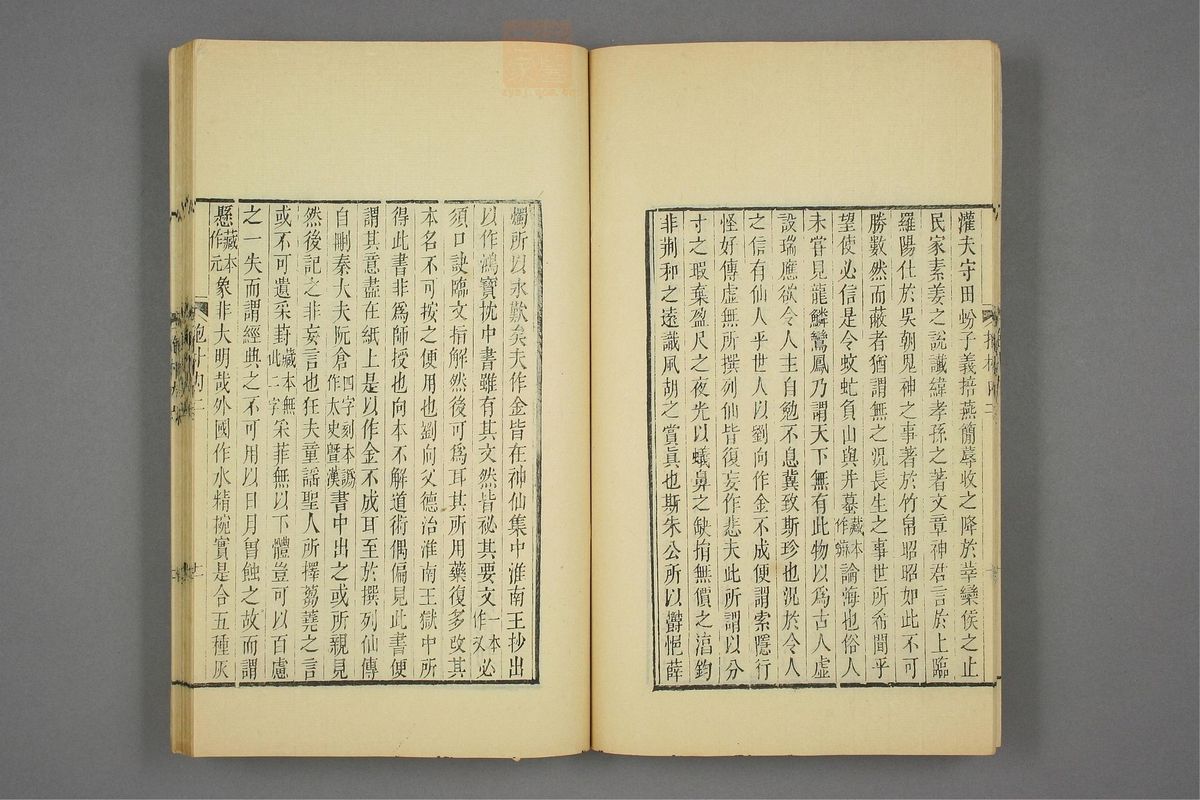 灌夫守田蚡子義掊燕簡蓐收之降於莘欒侯之止
民家素姜之說讖緯孝孫之著文章神君言於上臨
羅陽仕於吳朝鬼神之事著於竹帛昭昭如此不可
勝數然而蔽者猶謂無之況長生之事世所希聞乎
望使必信是令蚊虻負山與井蟇藏本作蟆論海也俗人
未嘗見龍鱗鸞鳳乃謂天下無有此物以爲古人虛
設瑞應欲令人主自勉不息冀致斯珍也況於令人
之信有仙人乎世人以劉向作金不成便謂索隱行
怪好傳虛無所撰列仙皆復妄作悲夫此所謂以分
寸之瑕棄盈尺之夜光以蟻鼻之缺捐無價之淳鈞
非荆和之遠識風胡之賞真也斯朱公所以鬱悒薛
燭所以永歎矣夫作金皆在神仙集中淮南王抄出
以作鴻寶枕中書雖有其文然皆祕其要文一本作又必
須口訣臨文指解然後可爲耳其所用藥復多改其
本名不可按之便用也劉向父德治淮南王獄中所
得此書非爲師授也向本不解道術偶偏見此書便
謂其意盡在紙上是以作金不成耳至於撰列仙傳
自刪秦大夫阮倉四字刻本譌作太史暨漢書中出之或所親見
然後記之非妄言也狂夫童謡聖人所擇芻蕘之言
或不可遺采葑藏本無此二字采菲無以下體豈可以百慮
之一失而謂經典之不可用以日月曾蝕之故而謂
懸藏本作元象非大明哉外國作水精椀實是合五種灰